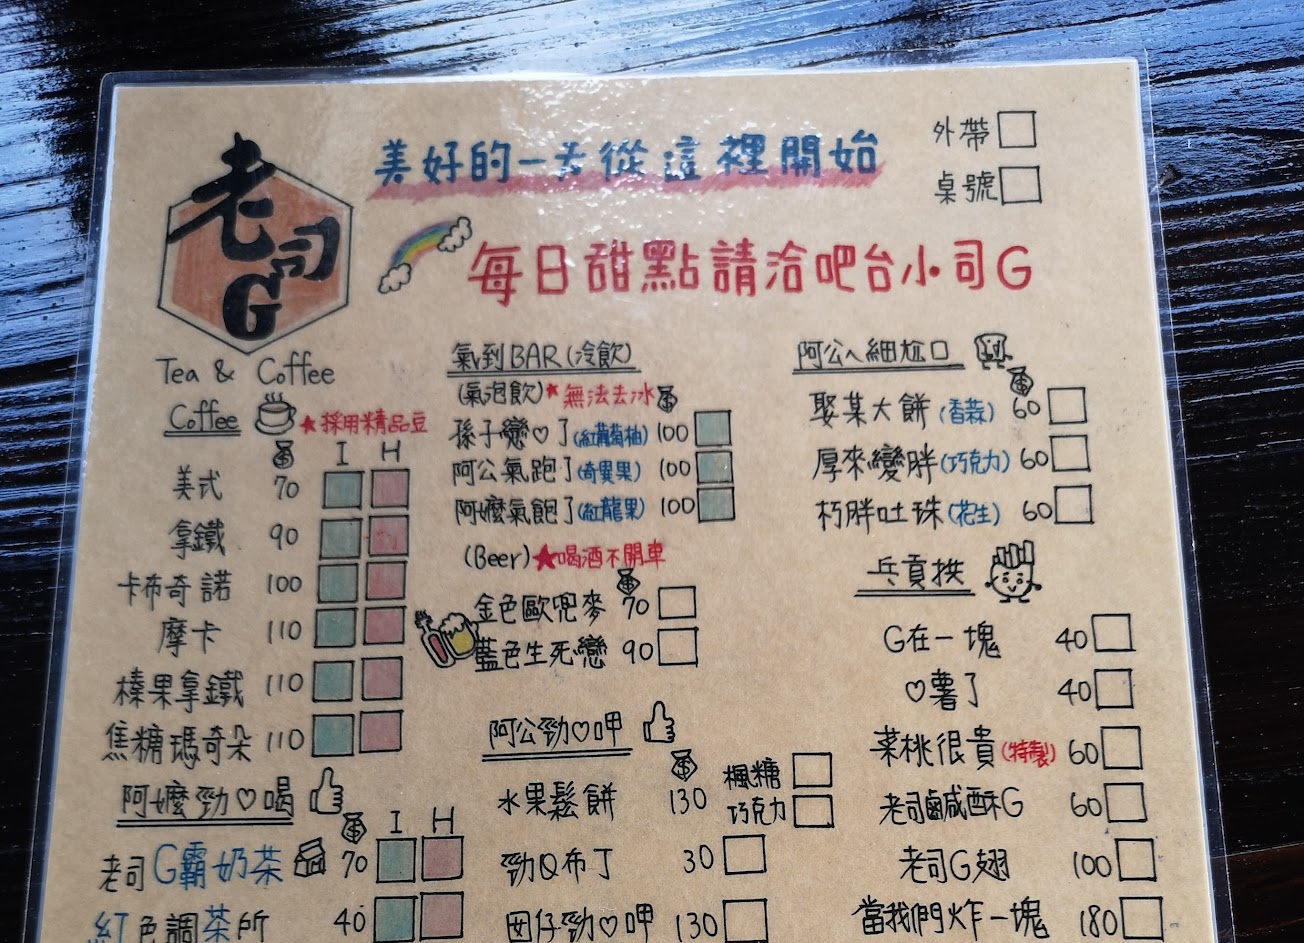 老司G
美好的一天從這裡開始
外帶
桌號
每日甜點請洽吧台小司G
Tea & Coffee
Coffee ★採用精品豆
I H
美式 70
拿鐵 90
卡布奇諾 100
摩卡 110
榛果拿鐵 110
焦糖瑪奇朵 110
阿嬤勁♡喝
I H
老司G霸奶茶 70
紅色調茶所 40
氣到BAR(冷飲)
(氣泡飲)★無法去冰
孫子戀♡了(紅葡萄柚) 100
阿公氣跑了(奇異果) 100
阿嬤氣飽了(紅龍果) 100
(Beer)★喝酒不開車
金色歐兜麥 70
藍色生死戀 90
阿公勁♡呷
水果鬆餅 130 楓糖
巧克力
勁Q布丁 30
囡仔勁♡呷 130
阿公ㄟ細尬口
娶某大餅(香蒜) 60
厚來變胖(巧克力) 60
朽胖吐珠(花生) 60
兵貢拱
G在一塊 40
♡薯了 40
菜桃很貴(特製) 60
老司鹹酥G 60
老司G翅 100
當我們炸一塊 180